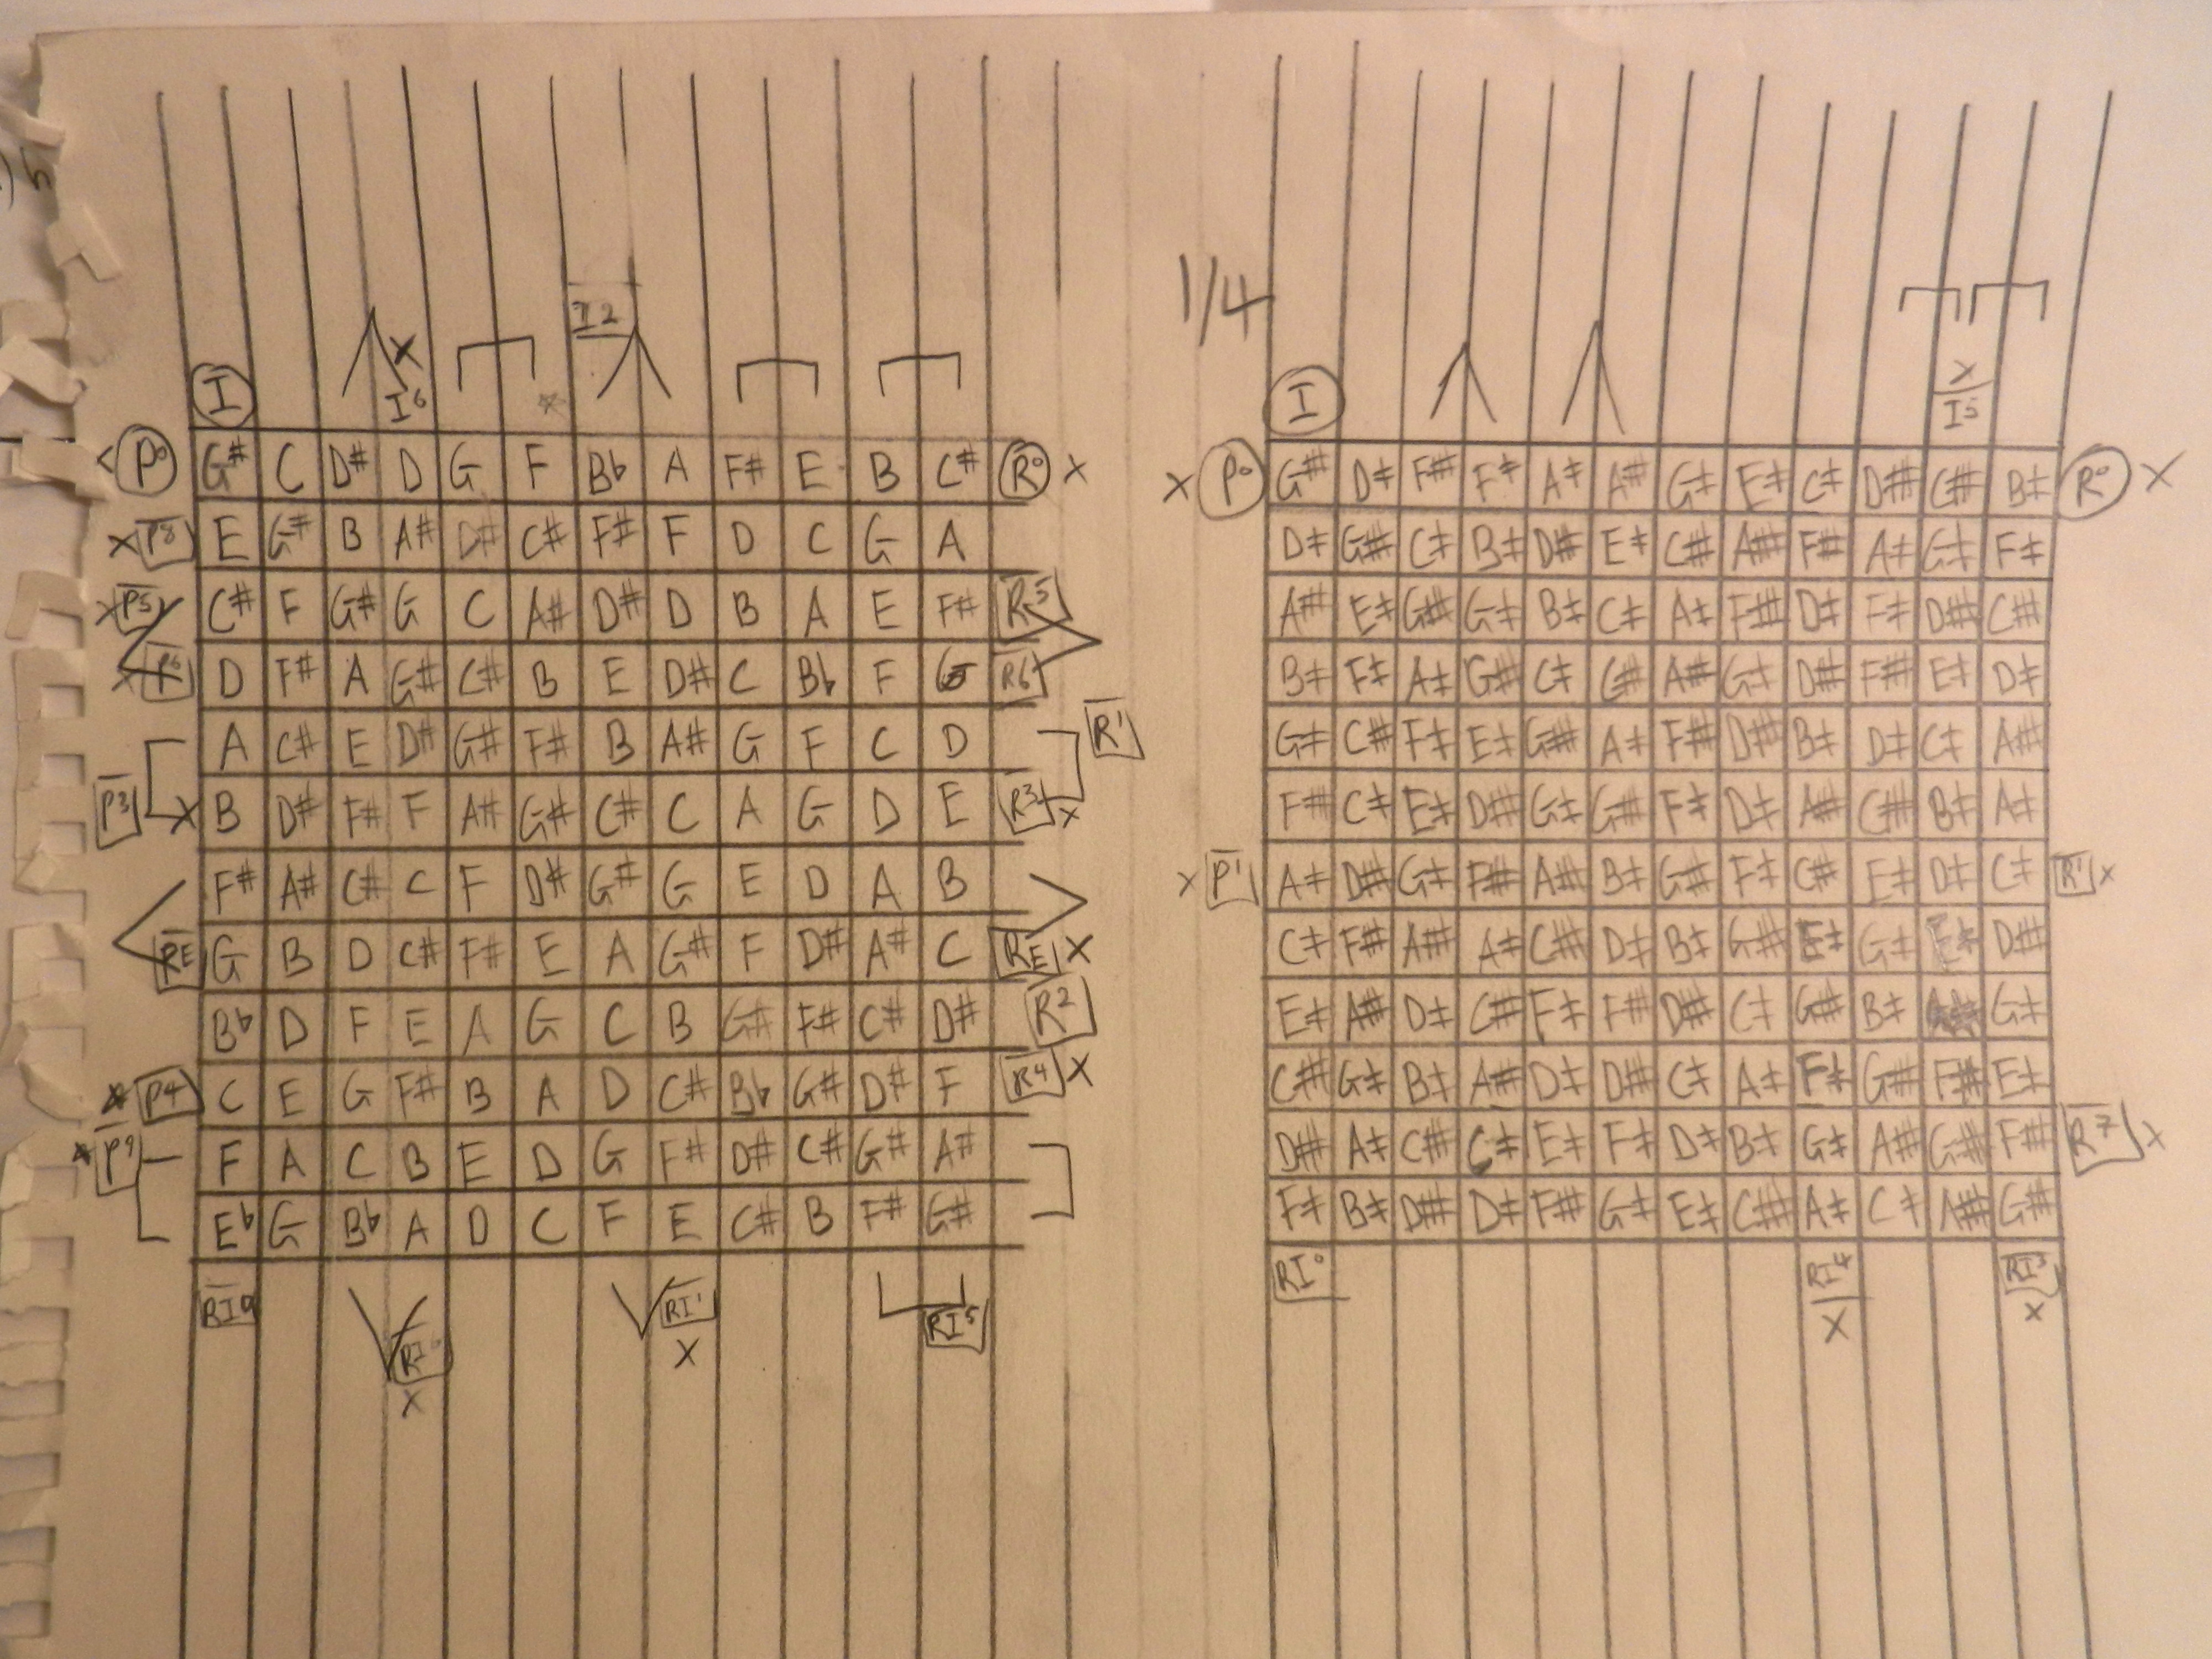 5
1/4
I2
X
I6
I
P0 G# C D# D G F Bb A F# E B C# R0 X
X P8 E G# B A# D# C# F# F D C G A
X P5 C# F G# G C A# D# D B A E F# R5
P6 D F# A G# C# B E D# C Bb F G R6
A C# E D# G# F# B A# G F C D R1
P3 X B D# F# F A# G# C# C A G D E R3 X
F# A# C# C F D# G# G E D A B
RE G B D C# F# E A G# F D# A# C RE X
Bb D F E A G C B G# F# C# D# R2
P4 C E G F# B A D C# Bb G# D# F R4 X
P9 F A C B E D G F# D# C# G# A#
Eb G Bb A D C F E C# B F# G#
RI9 RI0 RI1 RI5
X X
I
X
I5
X P0 G𝄰 D‡ F𝄰 F‡ A‡ A𝄰 G‡ E‡ C‡ D𝄰 C𝄰 B‡ R0 X
D‡ G𝄰 C‡ B‡ D𝄰 E‡ C𝄰 A𝄰 F𝄰 A‡ G‡ F‡
A𝄰 E‡ G𝄰 G‡ B‡ C‡ A‡ F𝄰 D‡ F‡ D𝄰 C𝄰
B‡ F‡ A‡ G𝄰 C‡ C𝄰 A𝄰 G‡ D𝄰 F𝄰 E‡ D‡
G‡ C𝄰 F‡ E‡ G𝄰 A‡ F𝄰 D𝄰 B‡ D‡ C‡ A𝄰
F𝄰 C‡ E‡ D𝄰 G‡ G𝄰 F‡ D‡ A𝄰 C𝄰 B‡ A‡
X P1 A‡ D𝄰 G‡ F𝄰 A𝄰 B‡ G𝄰 F‡ C𝄰 E‡ D‡ C‡ R1 X
C‡ F𝄰 A𝄰 A‡ C𝄰 D‡ B‡ G𝄰 E‡ G‡ D𝄰
E‡ A𝄰 D‡ C𝄰 F‡ F𝄰 D𝄰 C‡ G𝄰 B‡ G‡
C𝄰 G‡ B‡ A𝄰 D‡ D𝄰 C‡ A‡ F‡ G𝄰 F𝄰 E‡
D𝄰 A‡ C𝄰 C‡ E‡ F‡ D‡ B‡ G‡ A𝄰 G𝄰 F𝄰 R7 X
F‡ B‡ D𝄰 D‡ F𝄰 G‡ E‡ C𝄰 A‡ C‡ A𝄰 G𝄰
RI0 RI4 RI3
X X